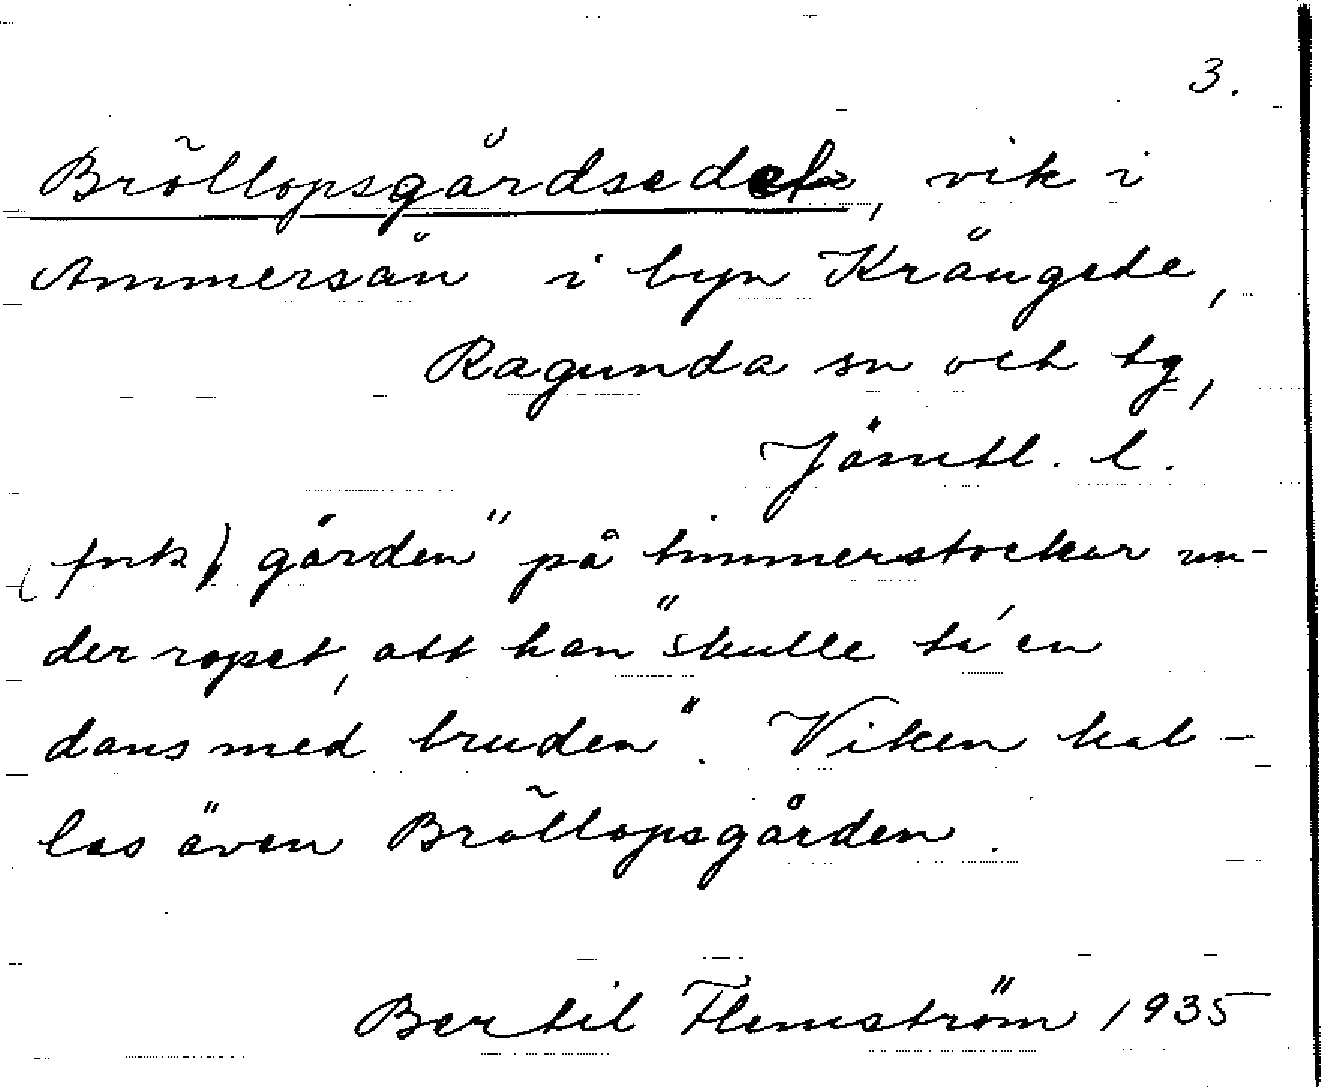 3.
Bröllopsgårdsedet, vik i
Ammersån i byn Krångede,
Ragunda sn och tg,
Jämtl. l.
(forts) gården" på timmerstockar un-
der ropet, att han "skulle ta' en
dans med bruden". Viken kal-
las även Bröllopsgården.
Bertil Flemström 1935